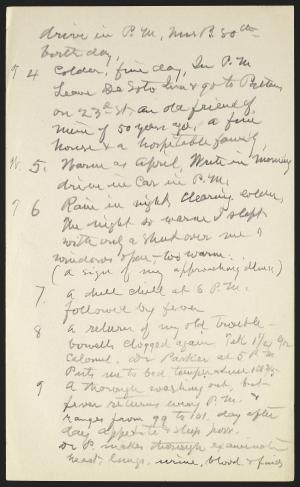 drive in P.M., Mrs P. 80th
birth day,
T 4 Colder, fine day, In P.M
Leave De Soto Inn & go to
on 23d St, an old friend of
mine of 50 years ago, a fine
house & a hospitable family,
W. 5. Warm as April, Write in morning
drive in Car in P.M,
T 6 Rain in night, clearing, colder,
The night so warm I slept
with only a sheet over me &
windows open - too warm.
(a sign of my approaching illness)
7. a chill at 6 P.M.
followed by fever
8 a return of my old trouble -
bowells clogged again. Take 1/4 gr
Calomel. Dr Parker at 5 P M
Puts me to bed temperature
9 a thorough washing out, but
fever returns every P.M. &
ranges from 99 to 101. day after
day, appetite & sleep poor.
Dr P. makes thorough examination
heart, lungs, urine, blood &